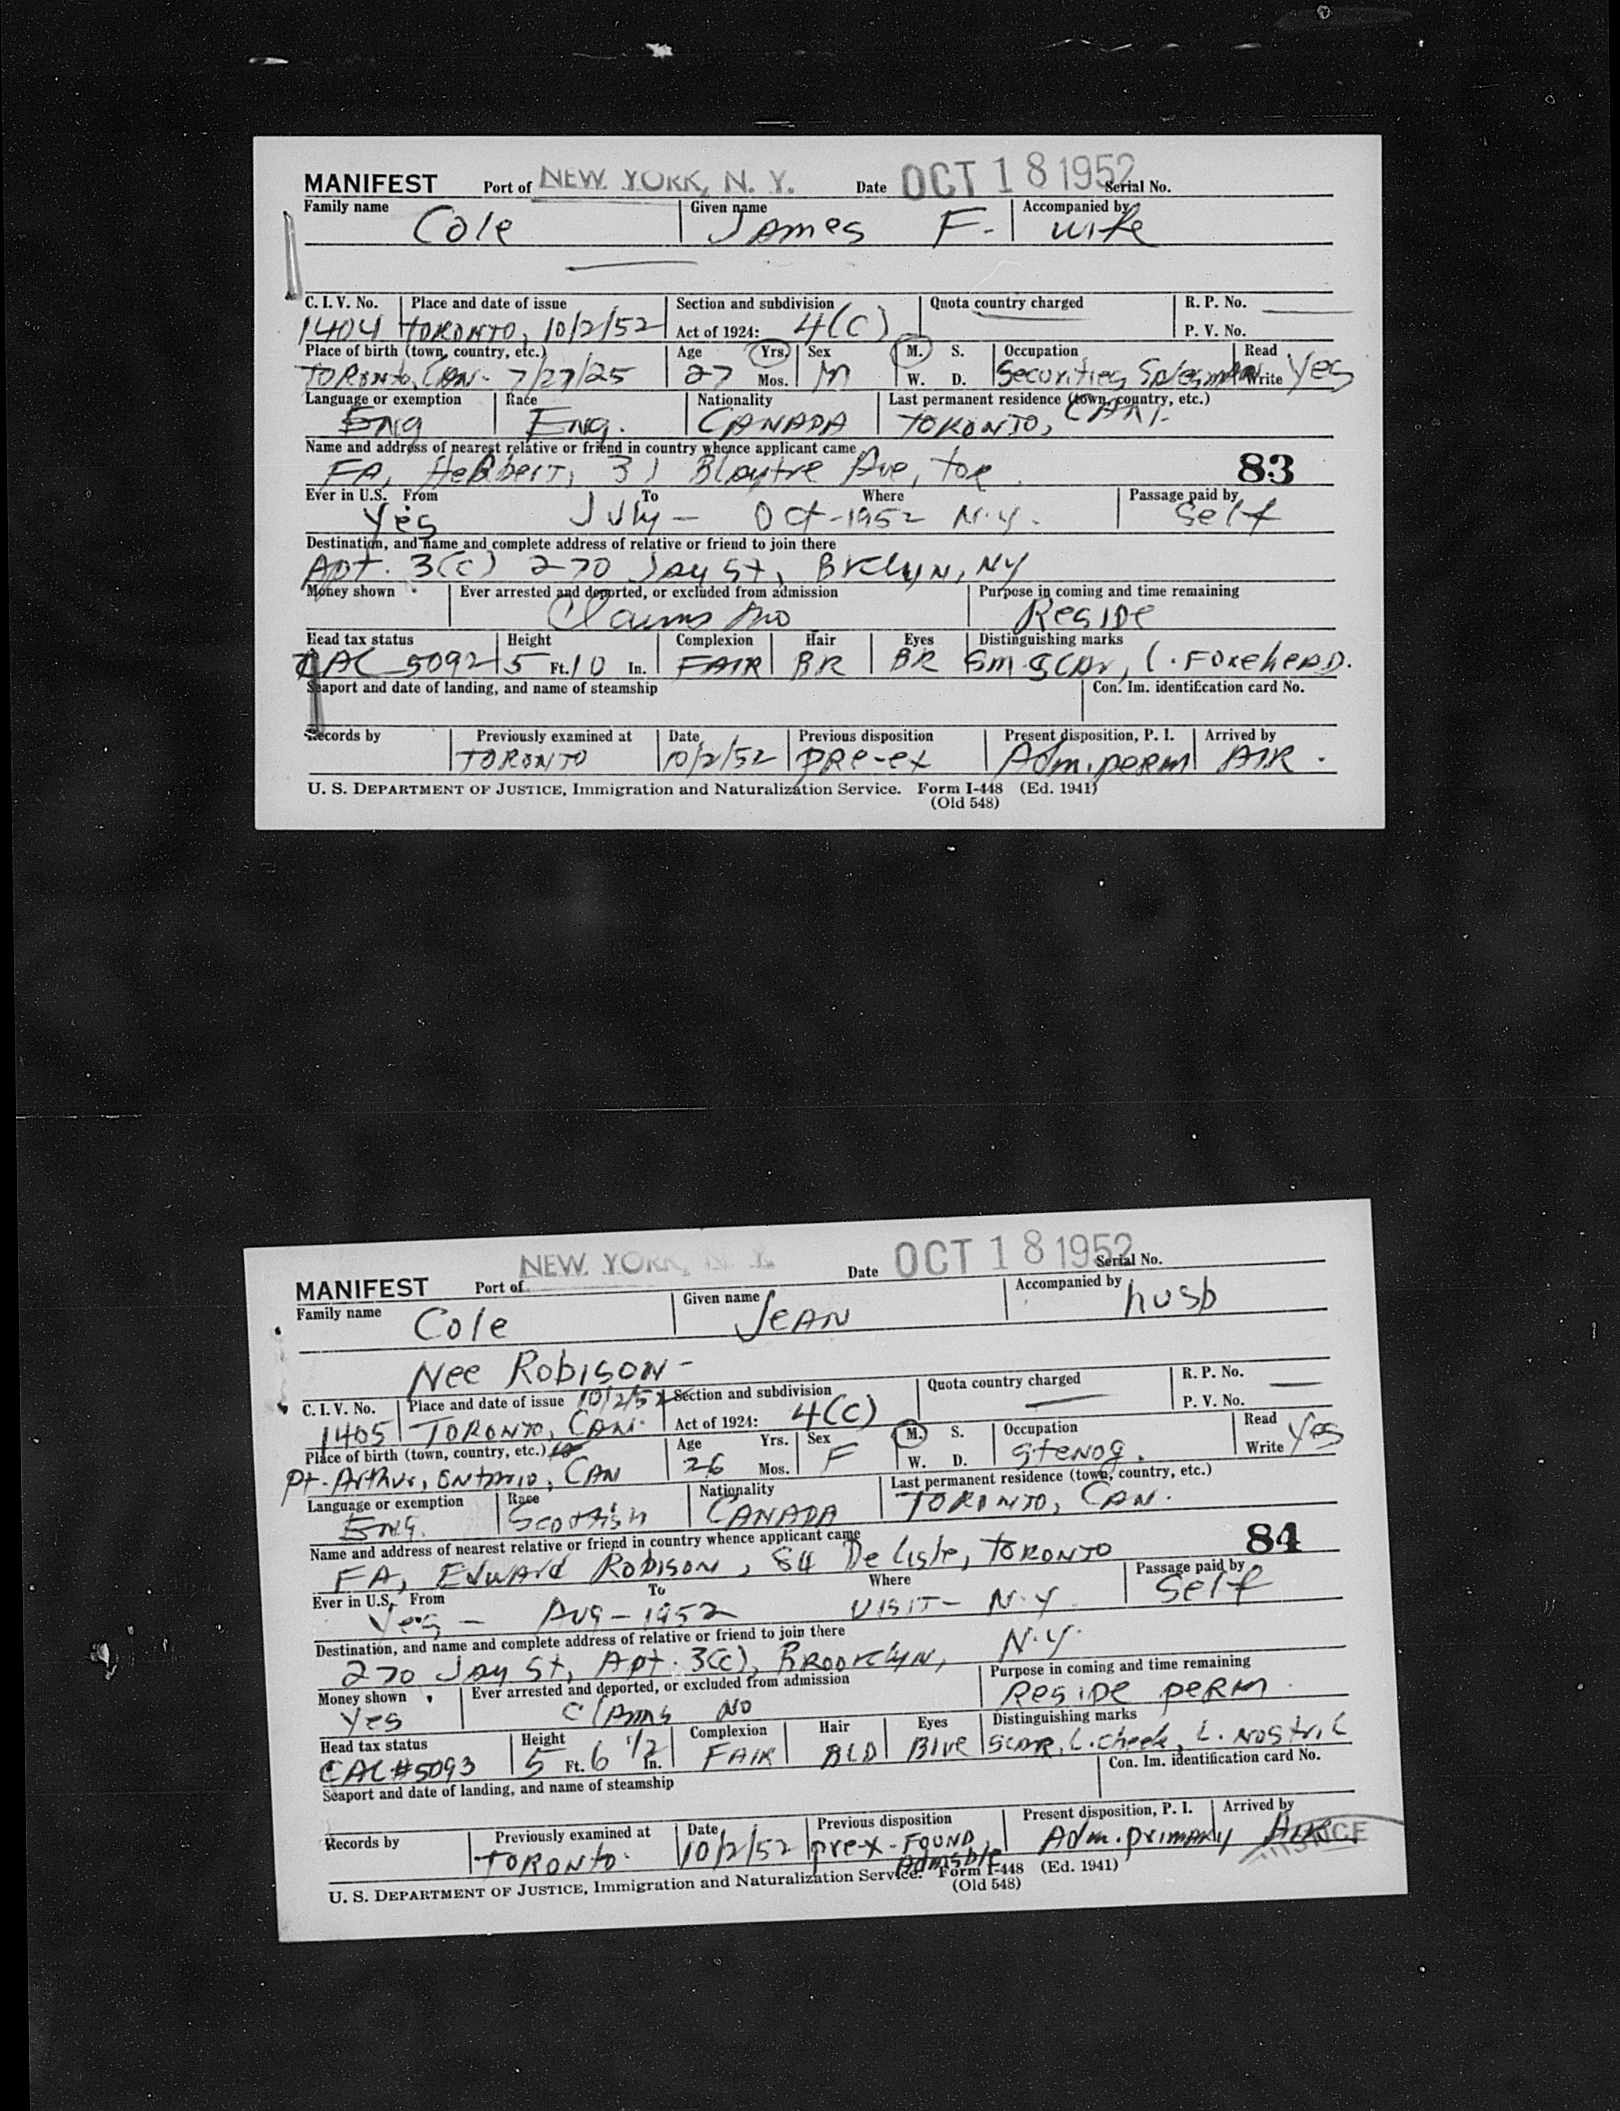 MANIFEST Port of NEW YORK, N. Y. Date OCT 18 1952 Serial No.
Family name Given name Accompanied by
Cole James F. wife
C. I. V. No. Place and date of issue Section and subdivision Quota country charged R. P. No.
1404 TORONTO, 10/2/52 Act of 1924: 4(C) P. V. No.
Place of birth (town, country, etc.) Age Yrs. Sex M. S. Occupation Read
TORONTO, CAN. 7/27/25 27 Mos. M W. D. Securities Salesman Write Yes
Language or exemption Race Nationality Last permanent residence (town, country, etc.)
Eng Eng. CANADA TORONTO, CAN.
Name and address of nearest relative or friend in country whence applicant came
FA, Herbert, 31 Blantyre Ave, Tor. 83
Ever in U.S. From To Where Passage paid by
Yes July - Oct-1952 N.Y. Self
Destination, and name and complete address of relative or friend to join there
Apt. 3(c) 270 Jay St, Brklyn, NY
Money shown Ever arrested and deported, or excluded from admission Purpose in coming and time remaining
Claims no Reside
Head tax status Height Complexion Hair Eyes Distinguishing marks
CAC 5092 5 Ft. 10 In. FAIR BR BR Sm. Scar, L. Forehead.
Seaport and date of landing, and name of steamship Con. Im. identification card No.
Records by Previously examined at Date Previous disposition Present disposition, P. I. Arrived by
TORONTO 10/2/52 pre-ex Adm. perm AIR.
U. S. DEPARTMENT OF JUSTICE, Immigration and Naturalization Service. Form I-448 (Ed. 1941)
(Old 548)
NEW YORK, N. Y. OCT 18 1952
MANIFEST Port of Date Serial No.
Family name Given name Accompanied by
Cole JEAN husb
Nee Robison-
C. I. V. No. Place and date of issue 10/2/52 Section and subdivision Quota country charged R. P. No.
1405 TORONTO, CAN. Act of 1924: 4(C) P. V. No.
Place of birth (town, country, etc.) Age Yrs. Sex M. S. Occupation Read
Pt. Arthur, Ontario, CAN 26 Mos. F W. D. Stenog. Write Yes
Language or exemption Race Nationality Last permanent residence (town, country, etc.)
Eng. Scottish CANADA TORONTO, CAN.
Name and address of nearest relative or friend in country whence applicant came
FA, Edward Robison, 84 De Lisle, TORONTO 84
Ever in U.S. From To Where Passage paid by
Yes - Aug-1952 Visit- N.Y. Self
Destination, and name and complete address of relative or friend to join there
270 Jay St, Apt. 3(c), Brooklyn, N.Y.
Money shown Ever arrested and deported, or excluded from admission Purpose in coming and time remaining
Yes Claims No Reside perm.
Head tax status Height Complexion Hair Eyes Distinguishing marks
CAC#5093 5 Ft. 6 1/2 In. FAIR BLD Blue Scar, L. cheek, L. Nostril
Seaport and date of landing, and name of steamship Con. Im. identification card No.
Records by Previously examined at Date Previous disposition Present disposition, P. I. Arrived by
TORONTO. 10/2/52 pre-x - FOUND Admsble Adm. primary AIR
U. S. DEPARTMENT OF JUSTICE, Immigration and Naturalization Service. Form I-448 (Ed. 1941)
(Old 548)